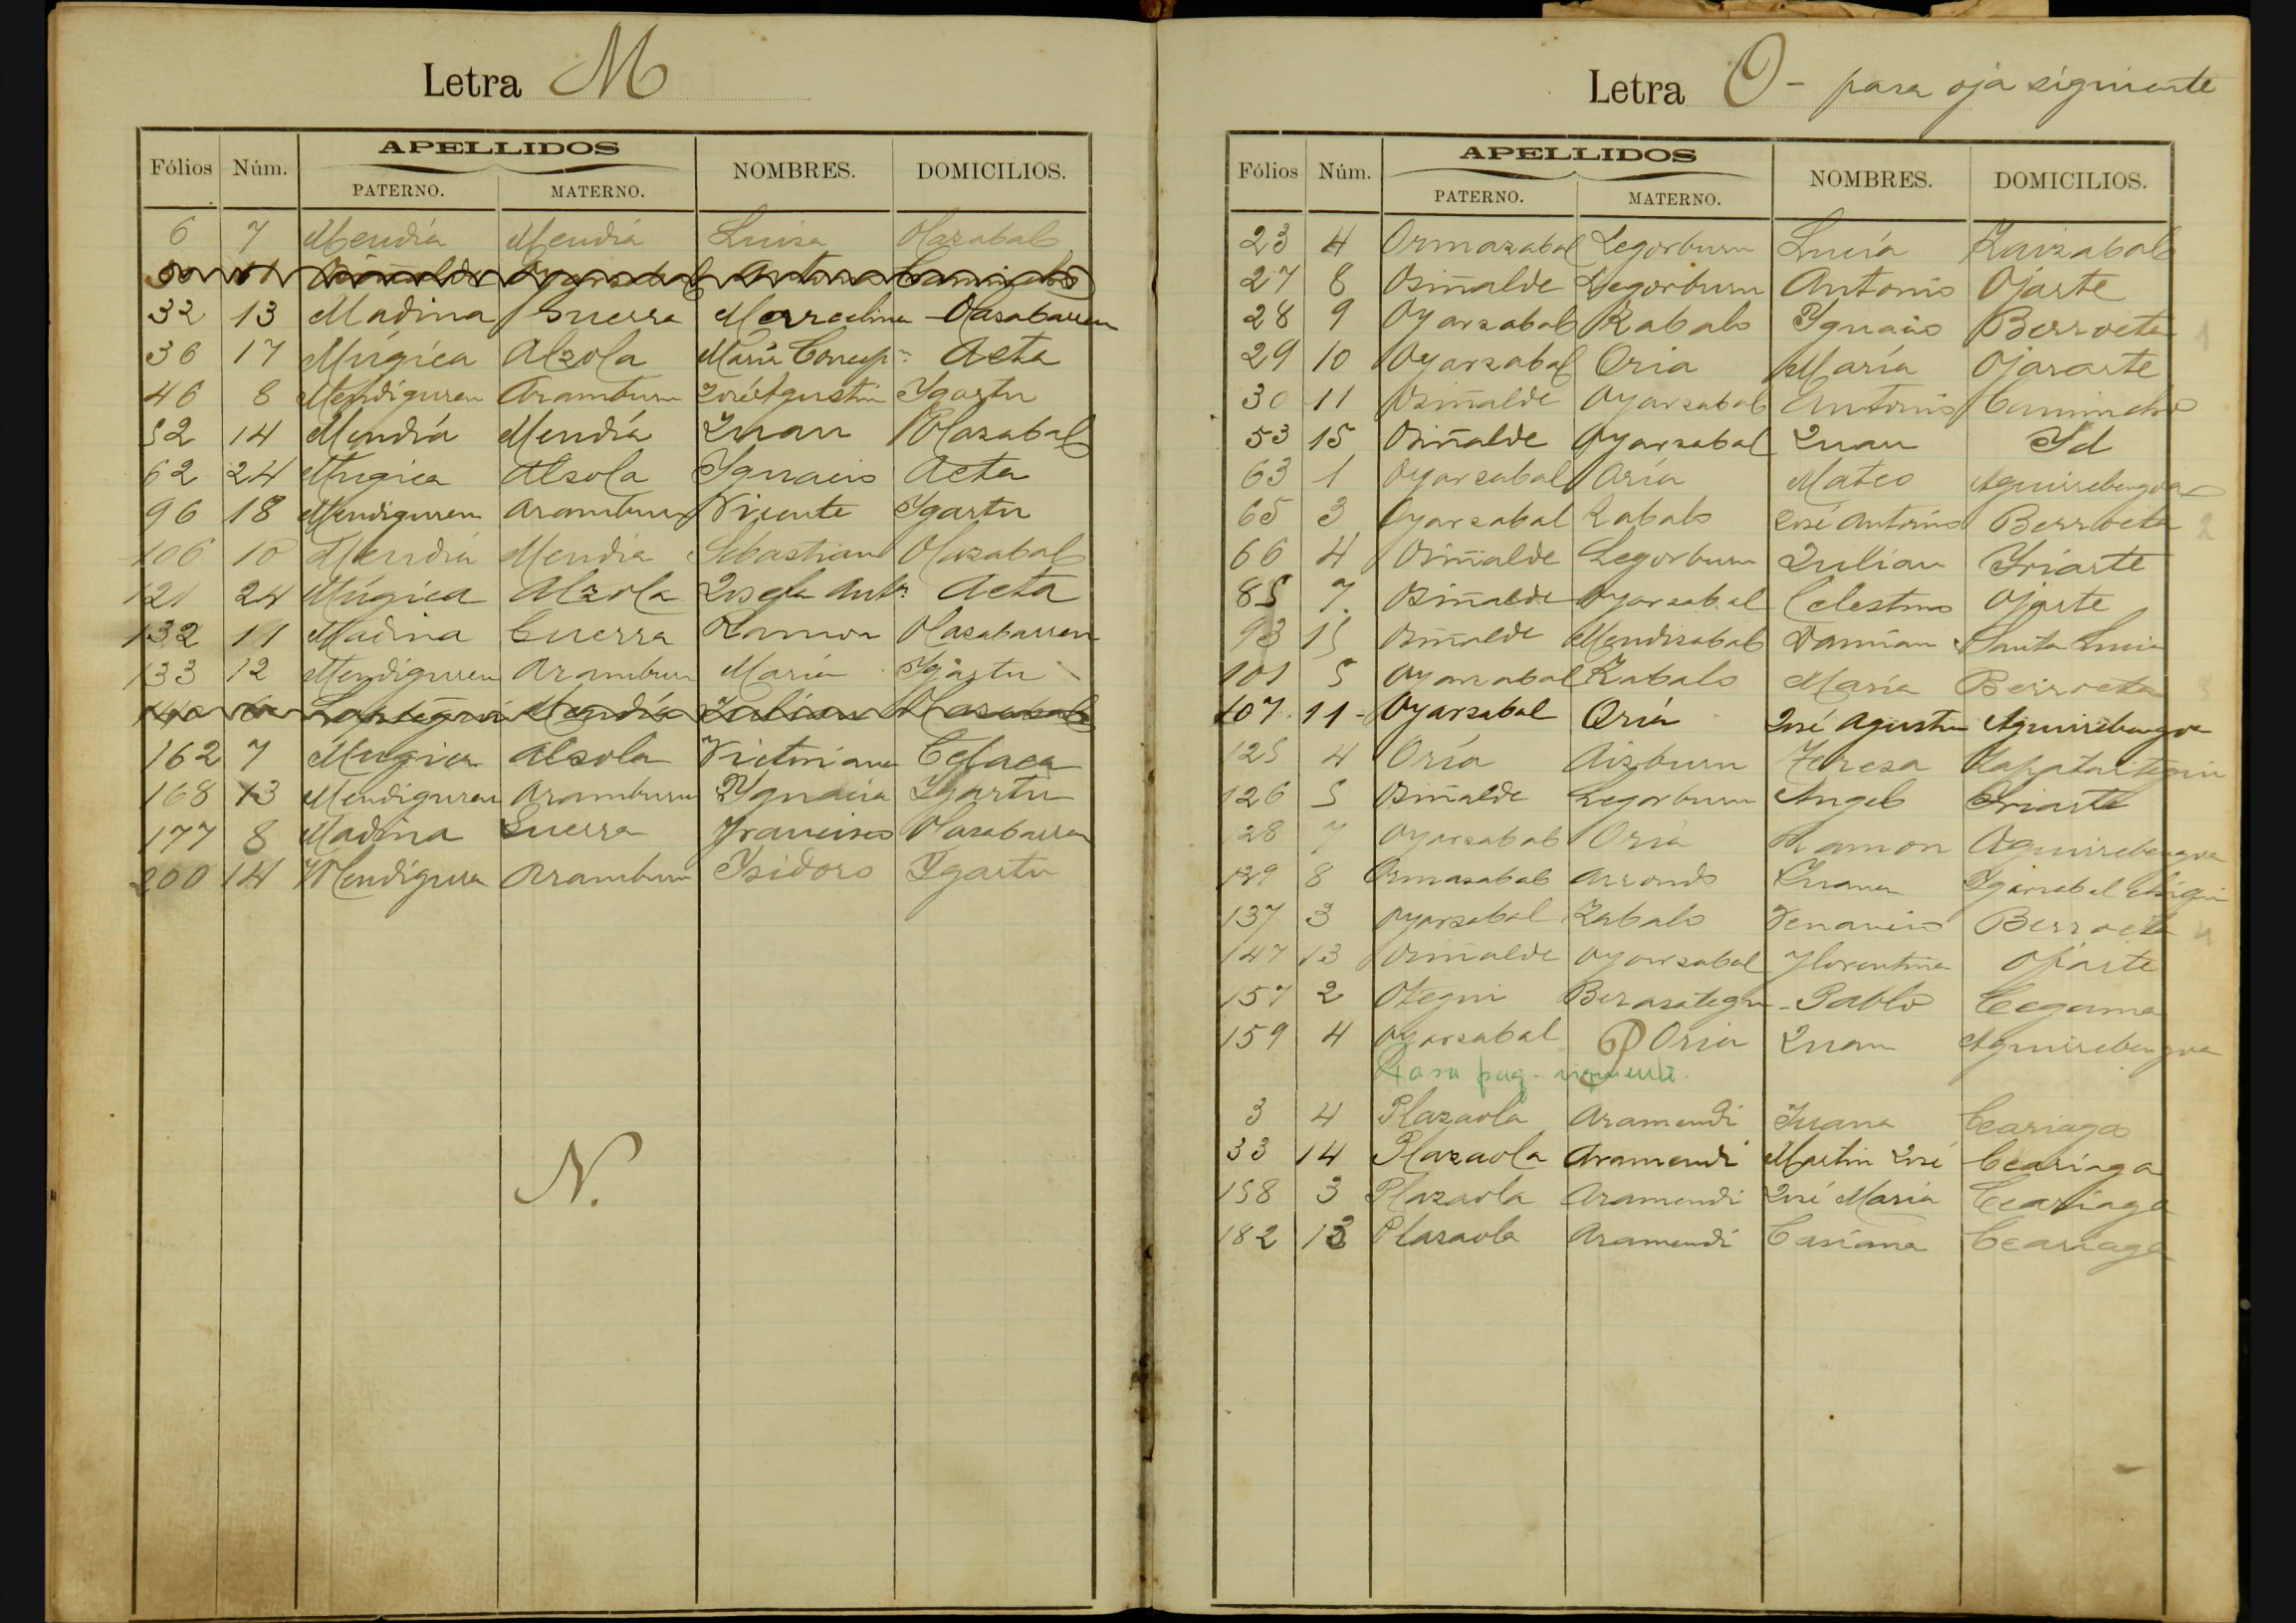 Letra M
Fólios Núm. APELLIDOS NOMBRES. DOMICILIOS.
PATERNO. MATERNO.
6 7 Mendía Mendía Luisa Olazabal
32 13 Madina Guerra Marcelina Olasabarren
36 17 Múgica Alzola María Concepn. Aeta
46 8 Mendíguren Aramburu José Agustin Ygartu
52 14 Mendía Mendía Juan Olazabal
62 24 Mugica Alsola Ygnacio Aeta
96 18 Mendiguren Aramburu Vicente Ygartu
106 10 Mendía Mendía Sebastian Olazabal
121 24 Múgica Alzola Josefa Anta. Aeta
132 11 Madina Guerra Ramon Olasabarren
133 12 Mendiguren Aramburu María Ygartu
Mendía Julian Olasabal
162 7 Mugica Alsola Victoriana Celaea
168 13 Mendiguren Aramburu Ygnacia Ygartu
177 8 Madina Guerra Francisco Olasabarren
200 14 Mendígure Aramburu Ysidoro Ygartu
N.
Letra O - para oja siguiente
Fólios Núm. APELLIDOS NOMBRES. DOMICILIOS.
PATERNO. MATERNO.
23 4 Ormazabal Legorburu Lucía Zaizabal
27 8 Osiñalde Legorburu Antonio Ojarte
28 9 Oyarzabal Zabalo Ygnacio Berroeta 1
29 10 Oyarzabal Oria María Ojararte
30 11 Osiñalde Oyarzabal Antonio
53 15 Osiñalde Oyarzabal Juan Yd
63 1 Oyarzabal Oría Mateo Aguirebengoa
65 3 Oyarzabal Zabalo José Antonio Berroeta 2
66 4 Osiñalde Legorburu Julian Yriarte
85 7. Osiñalde Oyarsabal Celestino Ojarte
93 15 Osiñalde Mendizabal Damian Santa Lucia
101 5 Oyarzabal Zabalo María Berroeta 3
107. 11- Oyarzabal Oría José Agustin Aguirebengoa
125 4 Oría Aizburu Teresa Zapataitegui
126 5 Osiñalde Legorburu Angel Yriarte
128 7 Oyarzabal Oria Ramon Aguirebengoa
129 8 Ormasabal Arrondo Juana
137 3 Oyarzabal Zabalo Venancio Berroeta 4
147 13 Osiñalde Oyarzabal Florentina Ojarte
157 2 Otegui Berasategu - Pablo Cegama
159 4 Oyarzabal Oria Juan Aguirebengoa
Para pag. siguiente. P
3 4 Plazaola Aramendi Juana Ceariaga
33 14 Plazaola Aramendi Martin José Ceariaga
158 3 Plazaola Aramendi José María Ceariaga
182 13 Plazaola Aramendi Casiana Ceariaga